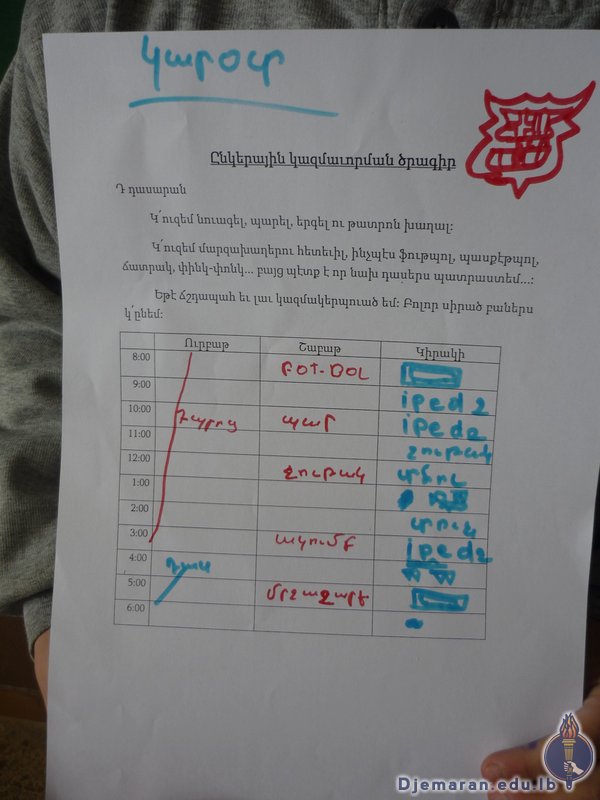 Կարօտ
Ընկերային կազմաւորման ծրագիր
Դ դասարան
Կ՛ուզեմ նուագել, պարել, երգել ու թատրոն խաղալ:
Կ՛ուզեմ մարզախաղերու հետեւիլ, ինչպէս ֆութպոլ, պասքէթպոլ,
ճատրակ, փինկ-փոնկ... բայց պէտք է որ նախ դասերս պատրաստեմ...:
Եթէ ճշդապահ եւ լաւ կազմակերպուած եմ: Բոլոր սիրած բաներս
կ՛ընեմ:
Ուրբաթ Շաբաթ Կիրակի
8:00 FOT-BOL
9:00 iped 2
10:00 դպրոց պար iped2
11:00 ջութակ
12:00 ջութակ
1:00
2:00
3:00 ակումբ iped2
4:00
5:00 մրջաշարք
6:00
Djemaran.edu.lb